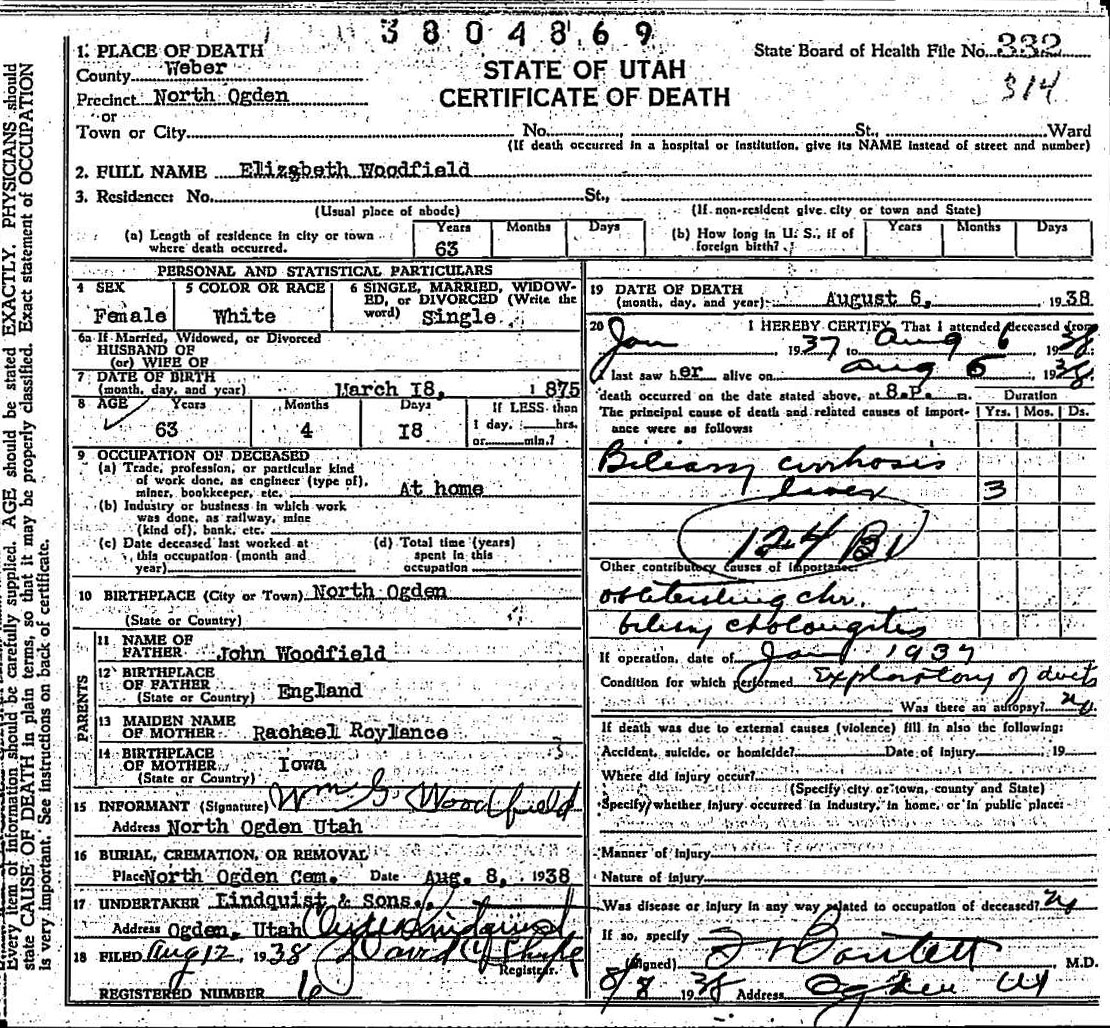 3804869
State Board of Health File No. 332
314
STATE OF UTAH
CERTIFICATE OF DEATH
1. PLACE OF DEATH
County Weber
Precinct North Ogden
or
Town or City No. St., Ward
(If death occurred in a hospital or institution, give its NAME instead of street and number)
2. FULL NAME Elizabeth Woodfield
3. Residence: No. St.,
(Usual place of abode) (If non-resident give city or town and State)
(a) Length of residence in city or town where death occurred. Years 63 Months Days
(b) How long in U. S., if of foreign birth? Years Months Days
PERSONAL AND STATISTICAL PARTICULARS
4 SEX Female
5 COLOR OR RACE White
6 SINGLE, MARRIED, WIDOWED, or DIVORCED (Write the word) Single
6a If Married, Widowed, or Divorced
HUSBAND OF
(or) WIFE OF
7 DATE OF BIRTH
(month, day, and year) March 18, 1875
8 AGE Years 63 Months 4 Days 18
If LESS than
1 day, hrs.
or min.?
9 OCCUPATION OF DECEASED
(a) Trade, profession, or particular kind
of work done, as engineer (type of),
miner, bookkeeper, etc. At home
(b) Industry or business in which work
was done, as railway, mine
(kind of), bank, etc.
(c) Date deceased last worked at
this occupation (month and
year)
(d) Total time (years)
spent in this
occupation
10 BIRTHPLACE (City or Town) North Ogden
(State or Country)
PARENTS
11 NAME OF
FATHER John Woodfield
12 BIRTHPLACE
OF FATHER
(State or Country) England
13 MAIDEN NAME
OF MOTHER Rachael Roylance
14 BIRTHPLACE
OF MOTHER Iowa
(State or Country)
15 INFORMANT (Signature) Wm G. Woodfield
Address North Ogden Utah
16 BURIAL, CREMATION, OR REMOVAL
Place North Ogden Cem. Date Aug. 8, 1938
17 UNDERTAKER Lindquist & Sons.
Address Ogden, Utah Clyde Lindquist
18 FILED Aug 12, 1938 David
Registrar.
REGISTERED NUMBER 6
19 DATE OF DEATH
(month, day, and year) August 6, 1938
20 I HEREBY CERTIFY, That I attended deceased from
Jan 1937 to Aug 6 1938
I last saw her alive on Aug 6 1938
death occurred on the date stated above, at 8.P. m.
Duration
The principal cause of death and related causes of importance were as follows: Yrs. Mos. Ds.
Biliary cirrhosis
liver 3
124 B1
Other contributory causes of importance:
obliterating chr.
biliary cholangitis
If operation, date of Jan 1937
Condition for which performed Exploratory of ducts
Was there an autopsy? no
If death was due to external causes (violence) fill in also the following:
Accident, suicide, or homicide? Date of injury 19
Where did injury occur?
(Specify city or town, county and State)
Specify whether injury occurred in industry, in home, or in public place:
Manner of injury
Nature of injury
Was disease or injury in any way related to occupation of deceased? no
If so, specify
(Signed) M.D.
8/8 1938 Address Ogden Ut
Every item of information should be carefully supplied. AGE should be stated EXACTLY. PHYSICIANS should
state CAUSE OF DEATH in plain terms, so that it may be properly classified. Exact statement of OCCUPATION
is very important. See instructions on back of certificate.